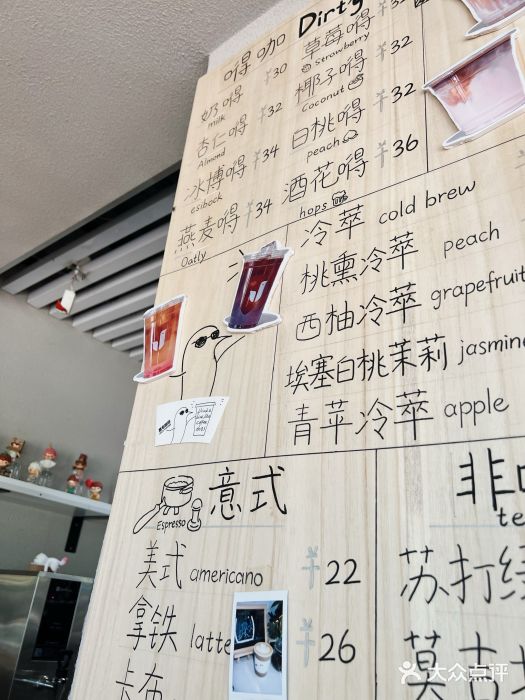 嘚咖 Dirty
奶嘚 ¥30
milk
杏仁嘚 ¥32
Almond
冰博嘚 ¥34
esibock
燕麦嘚 ¥34
Oatly
草莓嘚 ¥32
Strawberry
椰子嘚 ¥32
Coconut
白桃嘚 ¥32
peach
酒花嘚 ¥36
hops
冷萃 cold brew
桃熏冷萃 peach
西柚冷萃 grapefruit
埃塞白桃茉莉 jasmine
青苹冷萃 apple
Espresso
意式
美式 americano ¥22
拿铁 latte ¥26
卡布
非咖
te
苏打绿
莫吉
大众点评